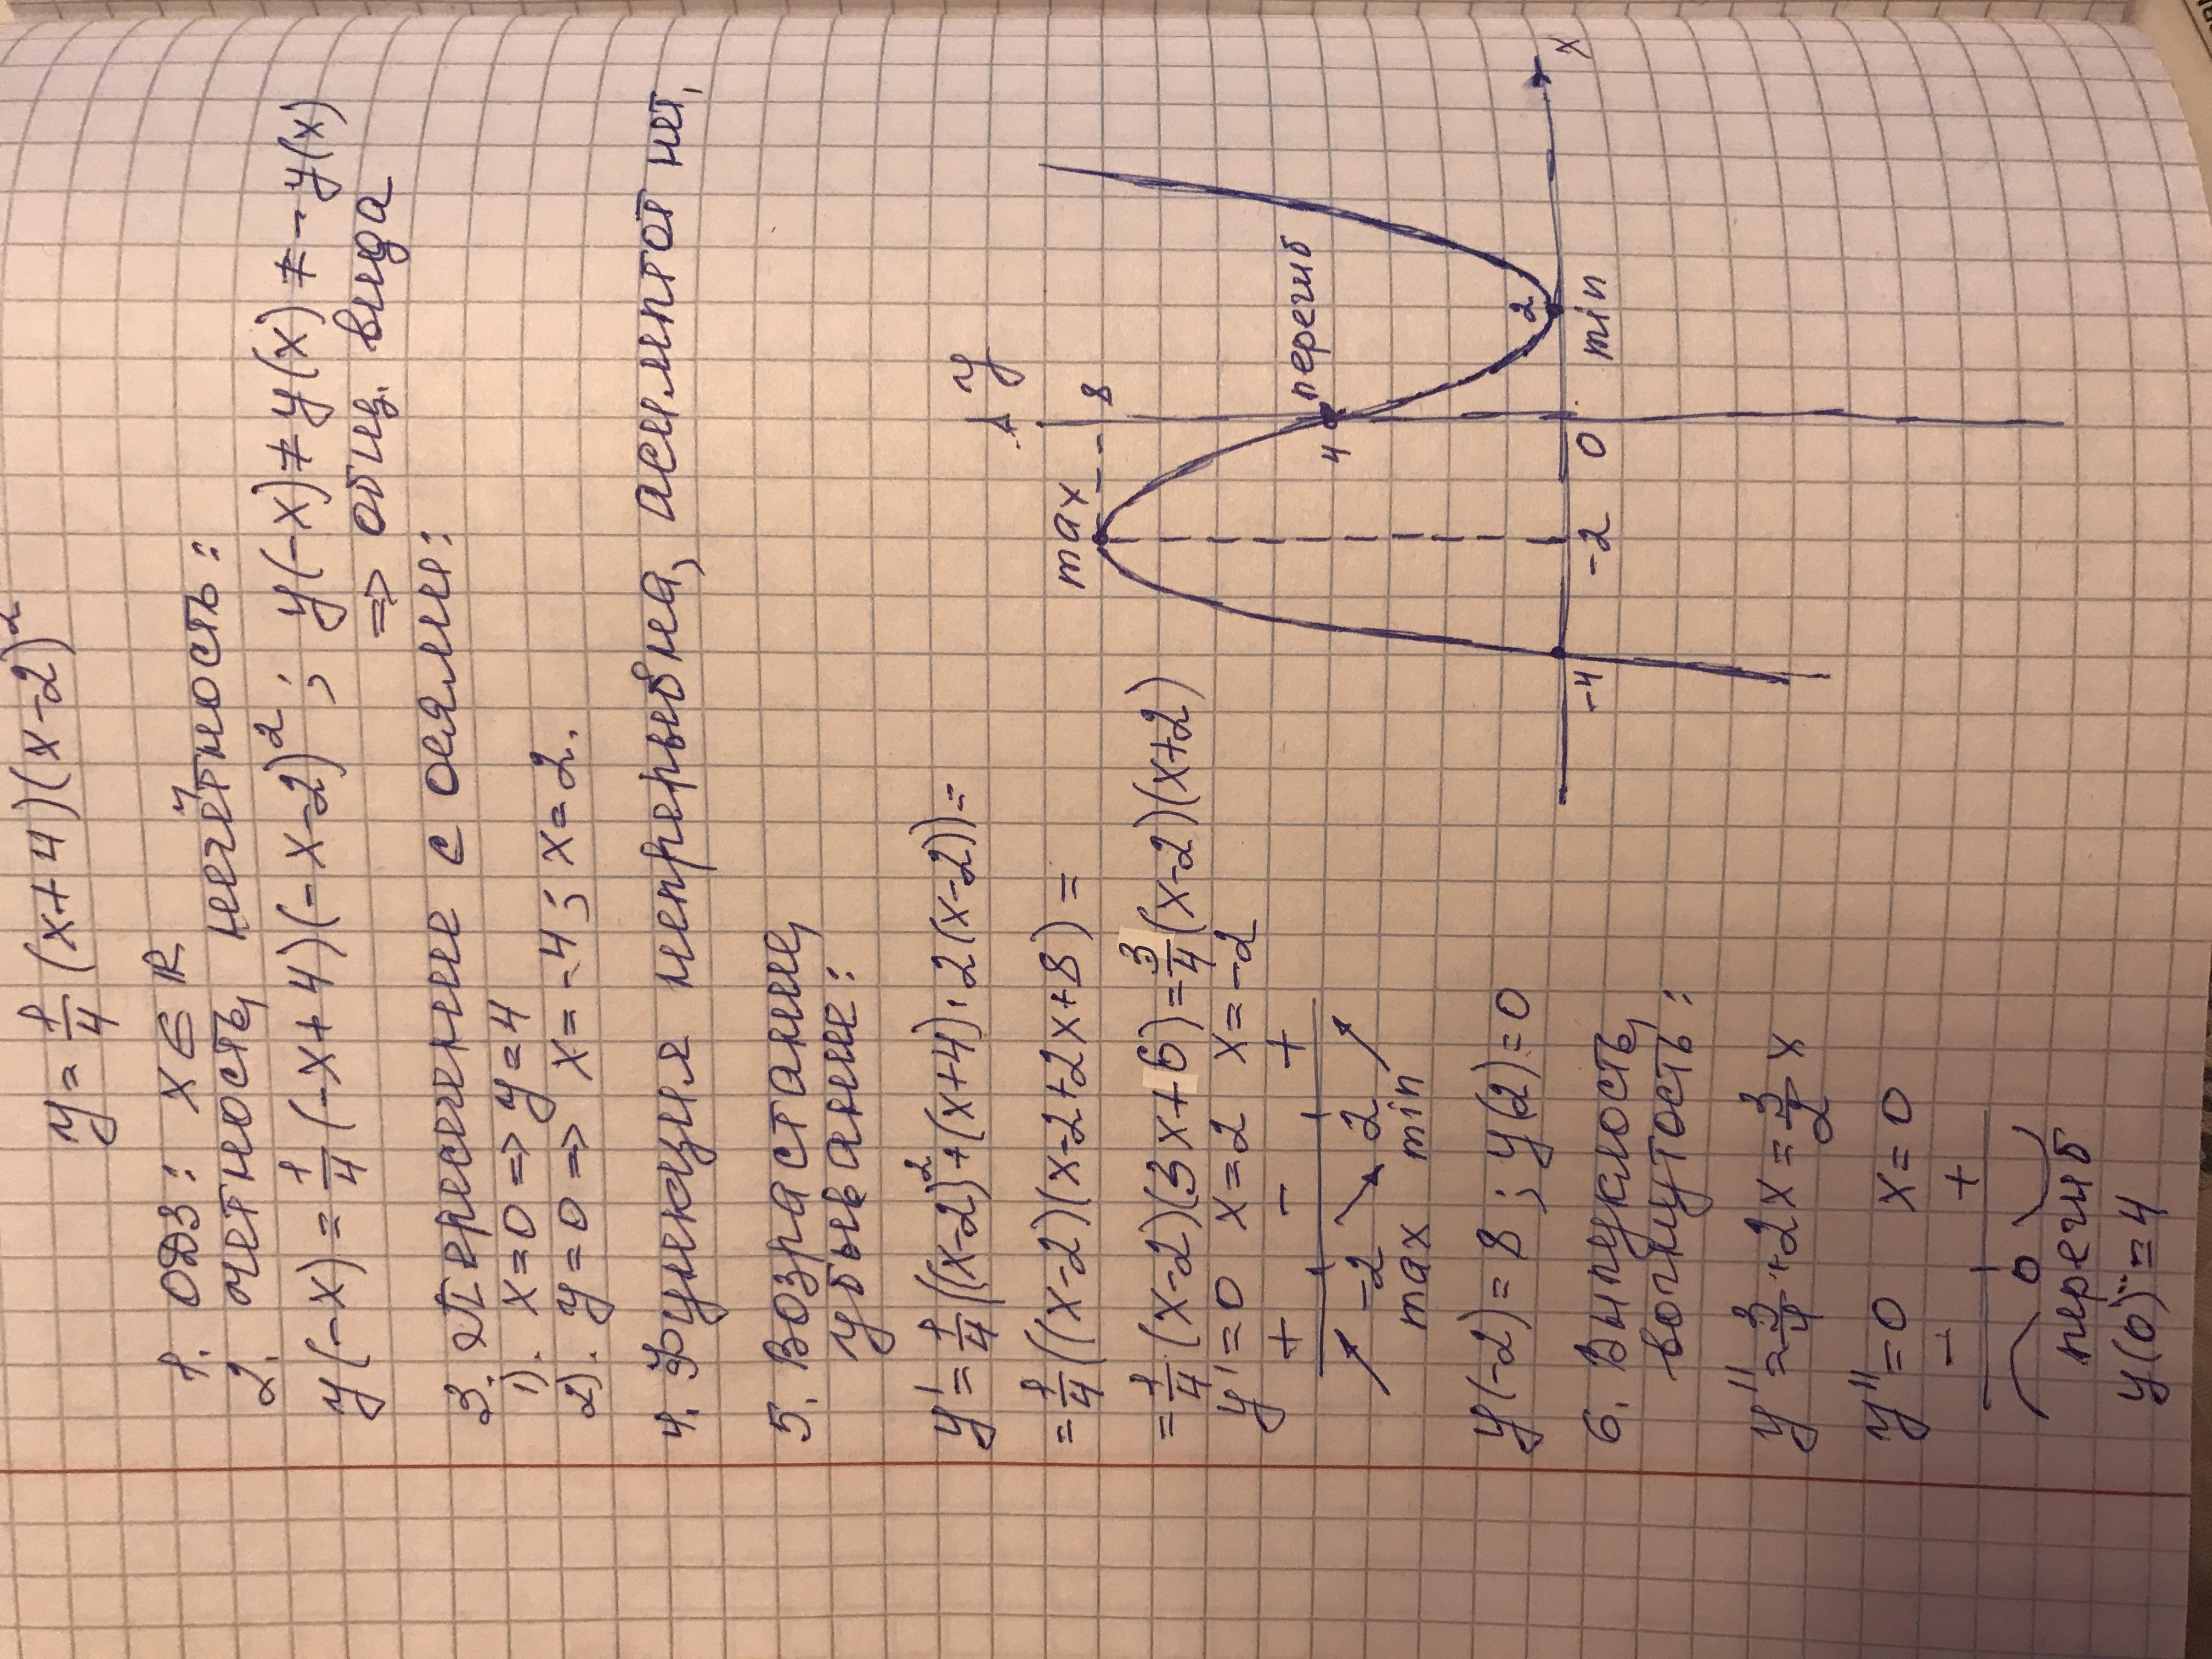 y = 1/4 (x+4)(x-2)²
1. ОДЗ: x ∈ ℝ
2. четность, нечётность:
y(-x) = 1/4 (-x+4)(-x-2)²; y(-x) ≠ y(x) ≠ -y(x)
=> общ. вида
3. Пересечение с осями:
1). x=0 => y=4
2). y=0 => x=-4; x=2.
4. Функция непрерывна, асимптот нет.
5. Возрастание,
убывание:
y' = 1/4((x-2)²+(x+4)·2(x-2))=
= 1/4((x-2)(x-2+2x+8) =
= 1/4(x-2)(3x+6) = 3/4(x-2)(x+2)
y'=0 x=2 x=-2
+ - +
-2 2
max min
y(-2) = 8; y(2)=0
6. Выпуклость,
вогнутость:
y'' = 3/4 · 2x = 3/2 x
y''=0 x=0
- +
0
перегиб
y(0) = 4
y
max 8
4 перегиб
2
-4 -2 0 min x